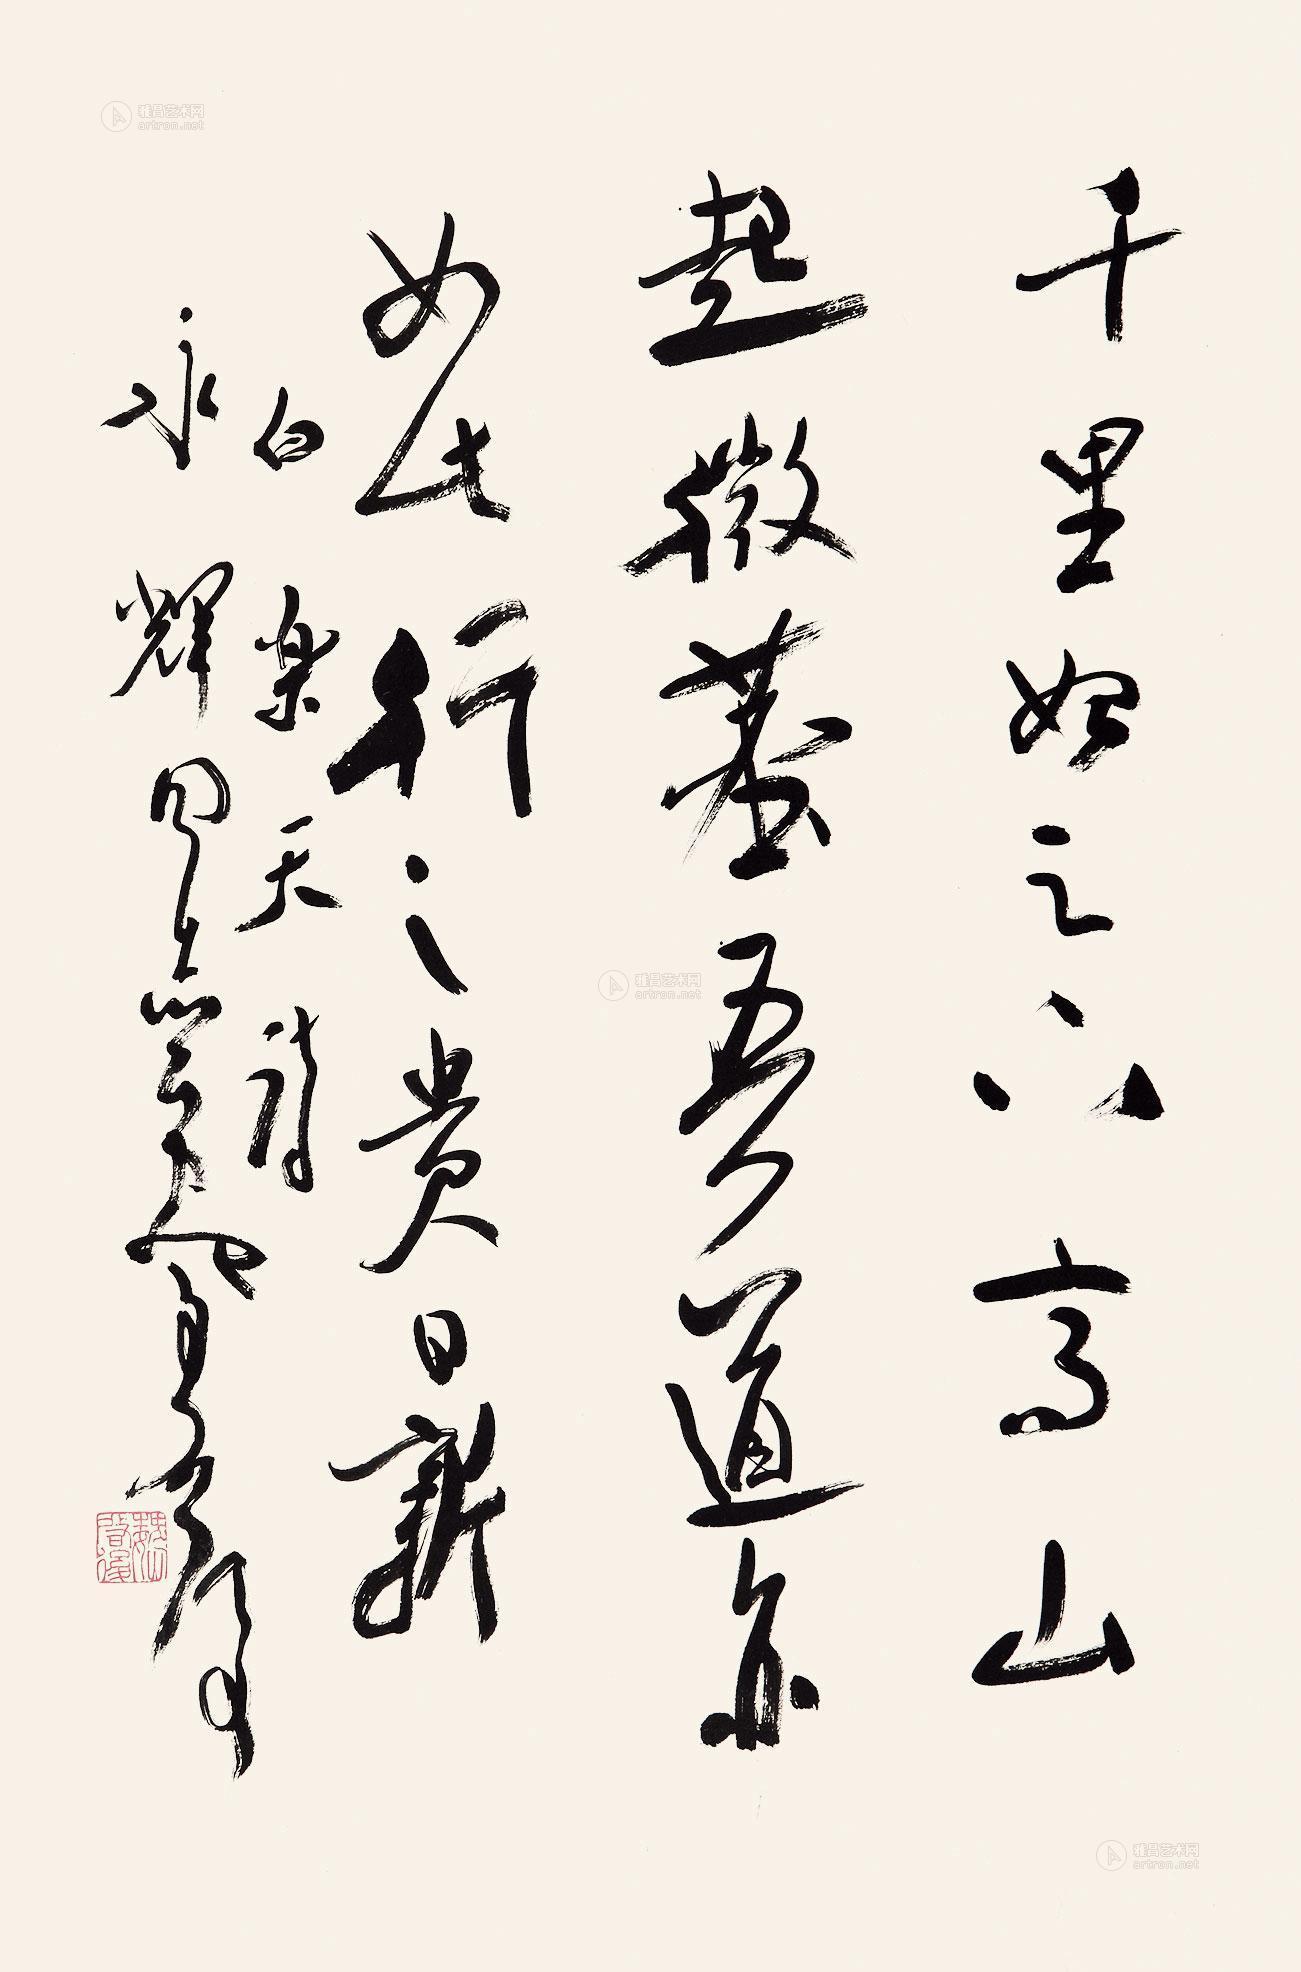 千里始足下高山
起微塵吾道亦
如此行之貴日新
白楽天詩
永輝同志
魏啟後
雅昌艺术网
artron.net
雅昌艺术网
artron.net
雅昌艺术网
artron.net